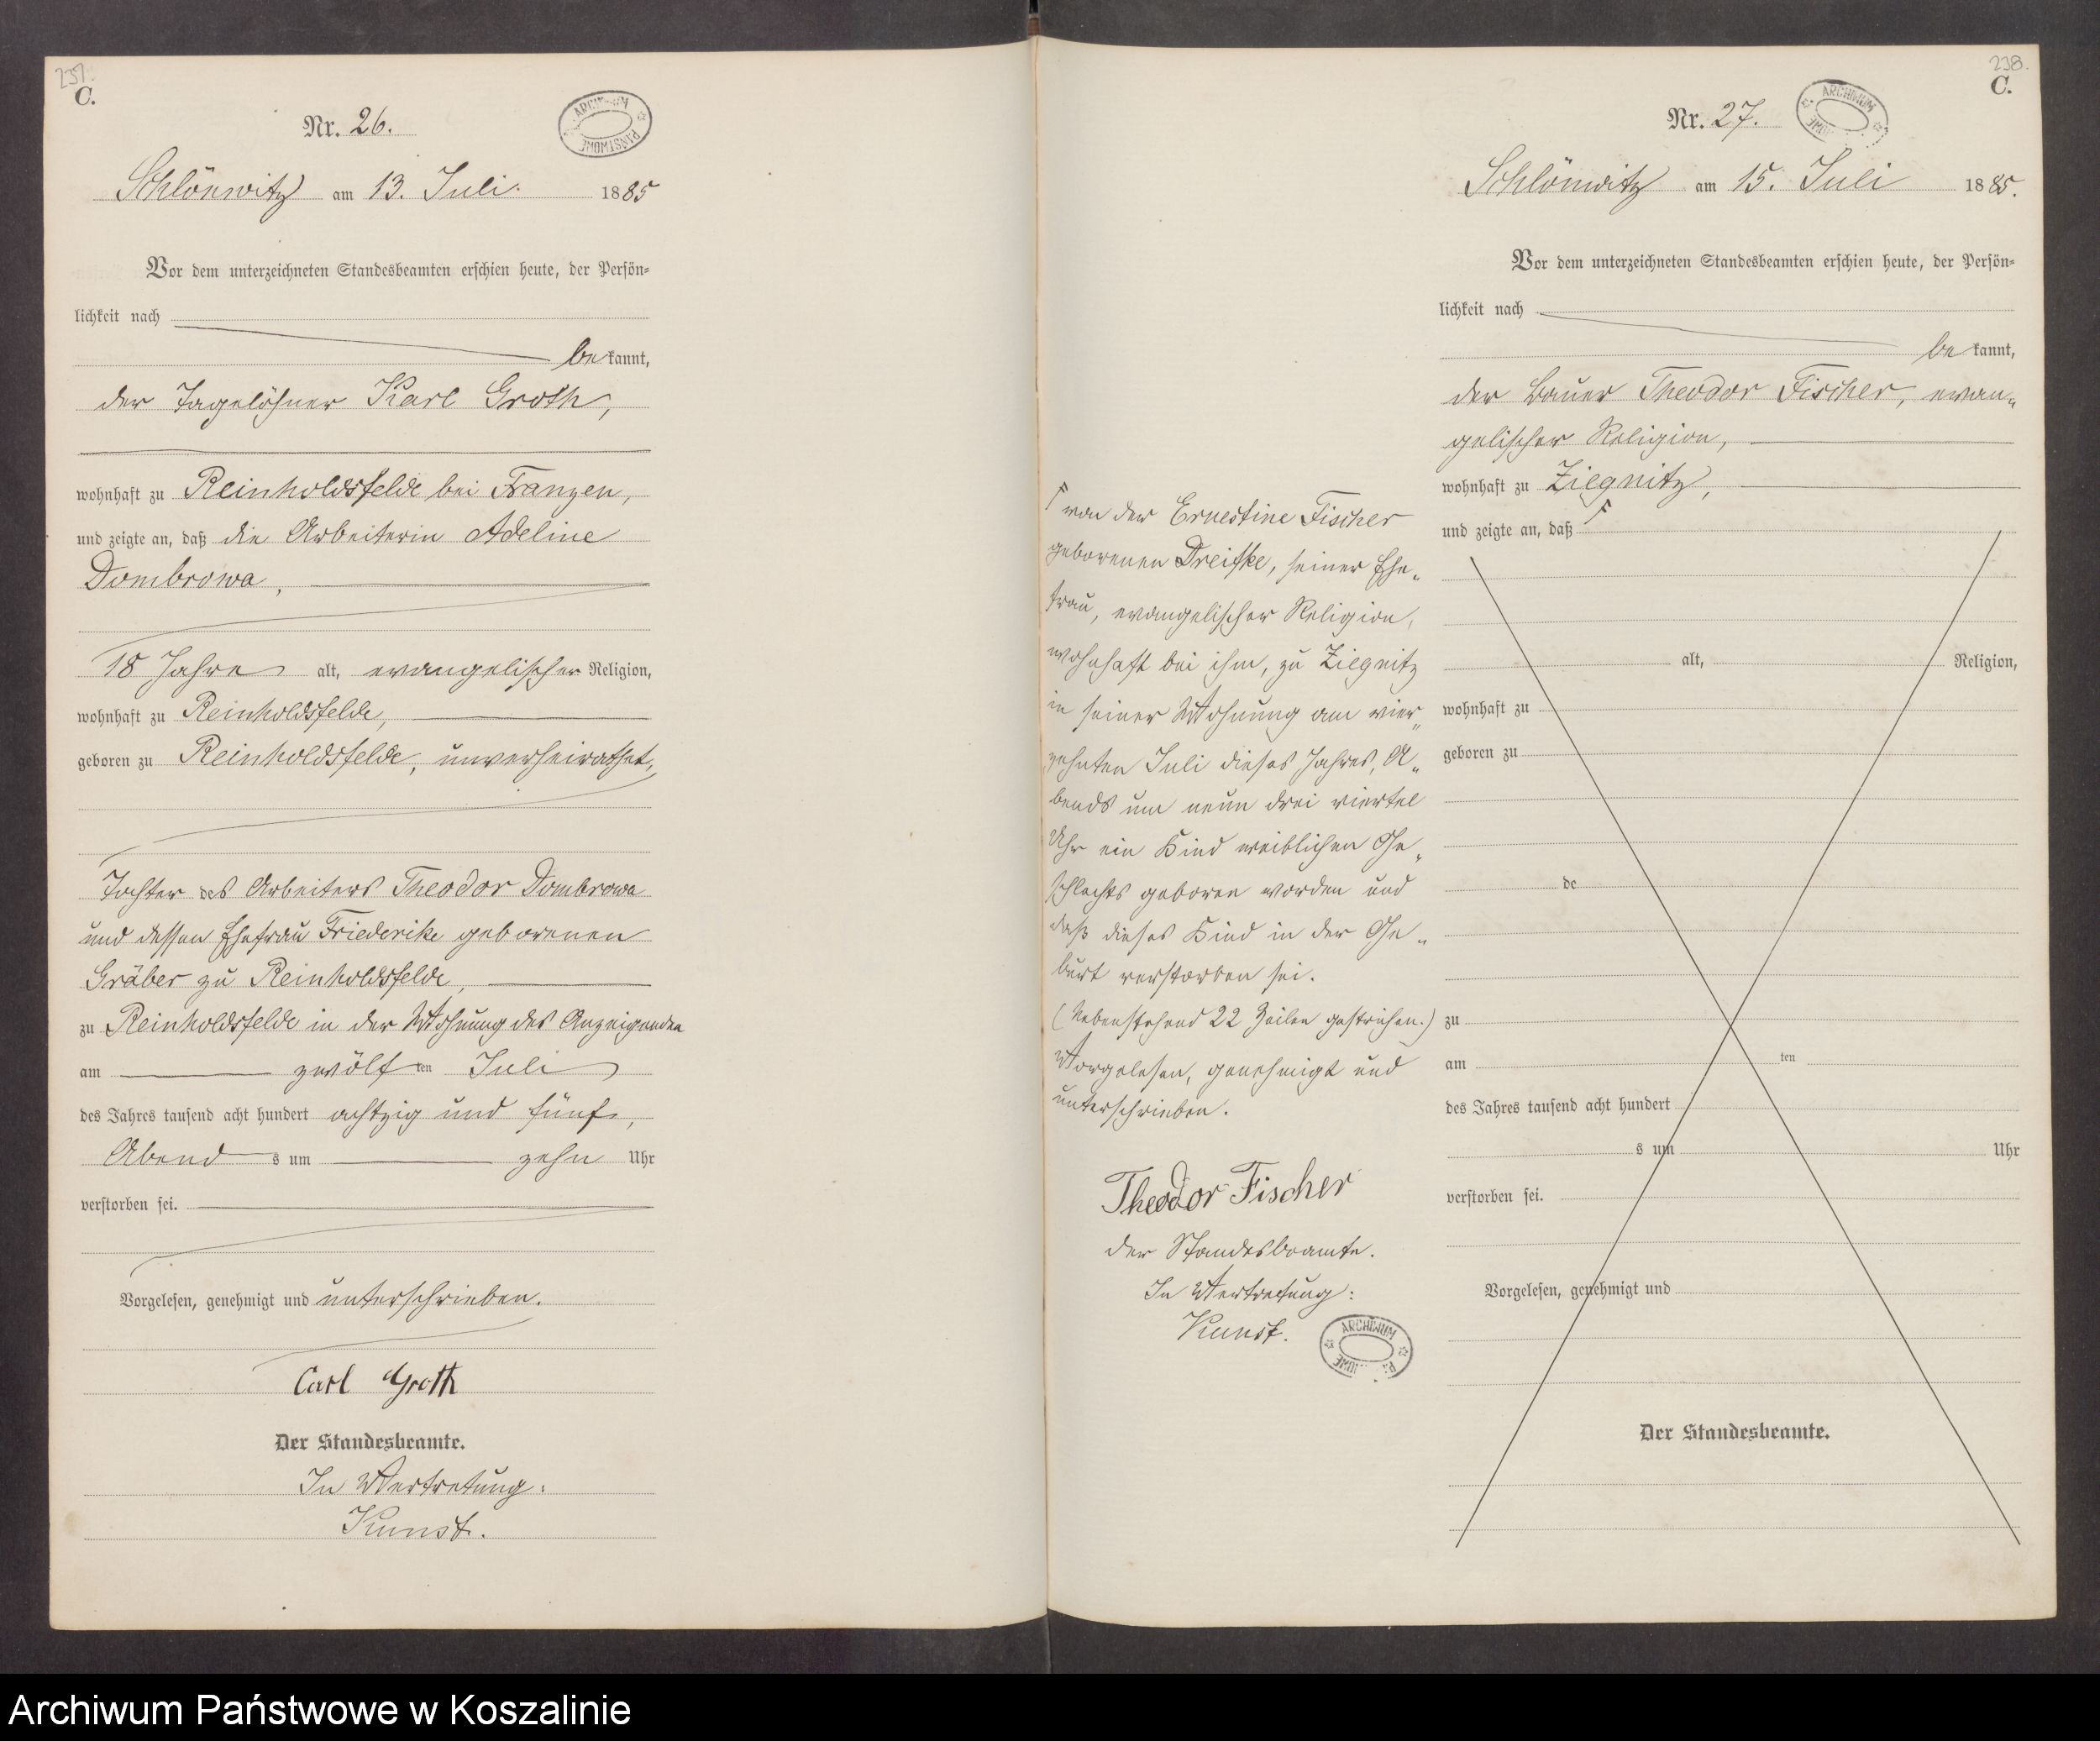 237.
C.
Nr. 26.
ARCHIWUM PAŃSTWOWE
Schlönwitz am 13. Juli. 1885
Vor dem unterzeichneten Standesbeamten erschien heute, der Persön-
lichkeit nach
bekannt,
der Tagelöhner Karl Groth,
wohnhaft zu Reinholdsfelde bei Franzen,
und zeigte an, daß die Arbeiterin Adeline
Dombrowa,
18 Jahre alt, evangelischer Religion,
wohnhaft zu Reinholdsfelde,
geboren zu Reinholdsfelde, unverheirathet,
Tochter des Arbeiters Theodor Dombrowa
und dessen Ehefrau Friederike geborenen
Gräber zu Reinholdsfelde,
zu Reinholdsfelde in der Wohnung des Anzeigenden
am zwölften Juli
des Jahres tausend acht hundert achtzig und fünf,
Abends um zehn Uhr
verstorben sei.
Vorgelesen, genehmigt und unterschrieben.
Carl Groth
Der Standesbeamte.
In Vertretung:
Kunst.
238.
C.
Nr. 27.
ARCHIWUM
Schlönwitz am 15. Juli 1885.
Vor dem unterzeichneten Standesbeamten erschien heute, der Persön-
lichkeit nach
bekannt,
der Bauer Theodor Fischer, evan-
gelischer Religion,
wohnhaft zu Ziegnitz,
und zeigte an, daß
von der Ernestine Fischer
geborenen Dreifke, seiner Ehe-
frau, evangelischer Religion,
wohnhaft bei ihm, zu Ziegnitz
in seiner Wohnung am vier-
zehnten Juli dieses Jahres, A-
bends um neun drei viertel
Uhr ein Kind weiblichen Ge-
schlechts geboren worden und
daß dieses Kind in der Ge-
burt verstorben sei.
(Nebenstehend 22 Zeilen gestrichen.)
Vorgelesen, genehmigt und
unterschrieben.
Theodor Fischer
der Standesbeamte.
In Vertretung:
Kunst.
ARCHIWUM
alt, Religion,
wohnhaft zu
geboren zu
de
zu
am ten
des Jahres tausend acht hundert
s um Uhr
verstorben sei.
Vorgelesen, genehmigt und
Der Standesbeamte.
Archiwum Państwowe w Koszalinie